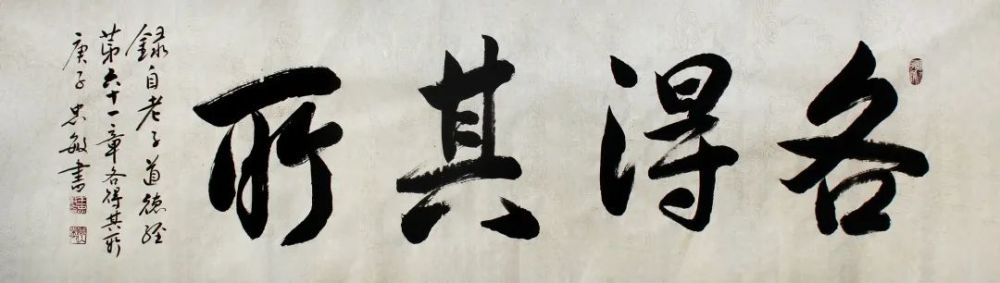 各得其所
録自老子道德经
第六十一章各得其所
庚子忠敏書